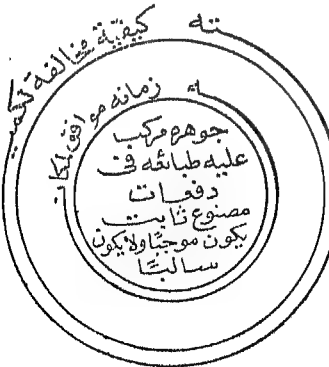 كيفيته مخالفة لكميته
زمانه موافق لمكانه
جوهره مركب
عليه طبائعه فى
دفعات
مصنوع ثابت
يكون موجبًا ولا يكون
سالبًا